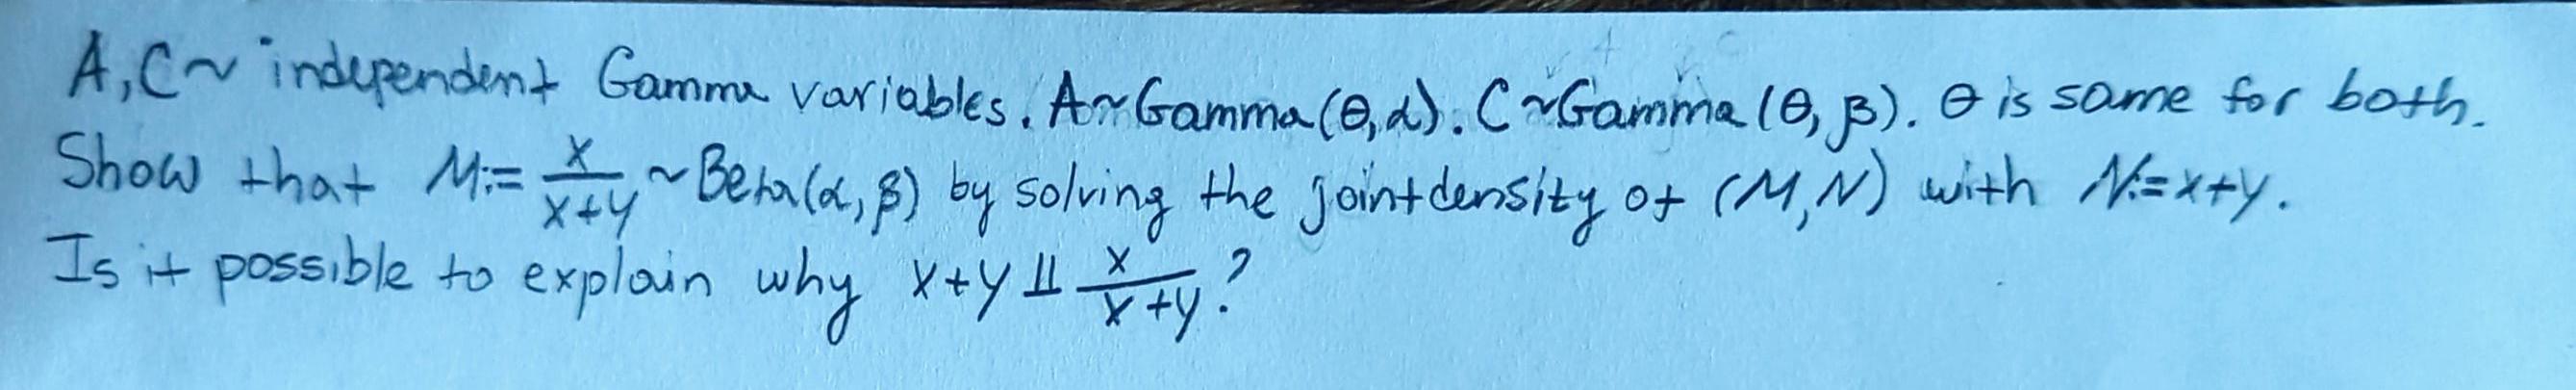 A, C ~ independent Gamma variables. A~Gamma(θ,α). C~Gamma(θ, β). θ is same for both.
Show that M:= x/(x+y) ~ Beta(α, β) by solving the joint density of (M, N) with N:=x+y.
Is it possible to explain why x+y ⫫ x/(x+y)?